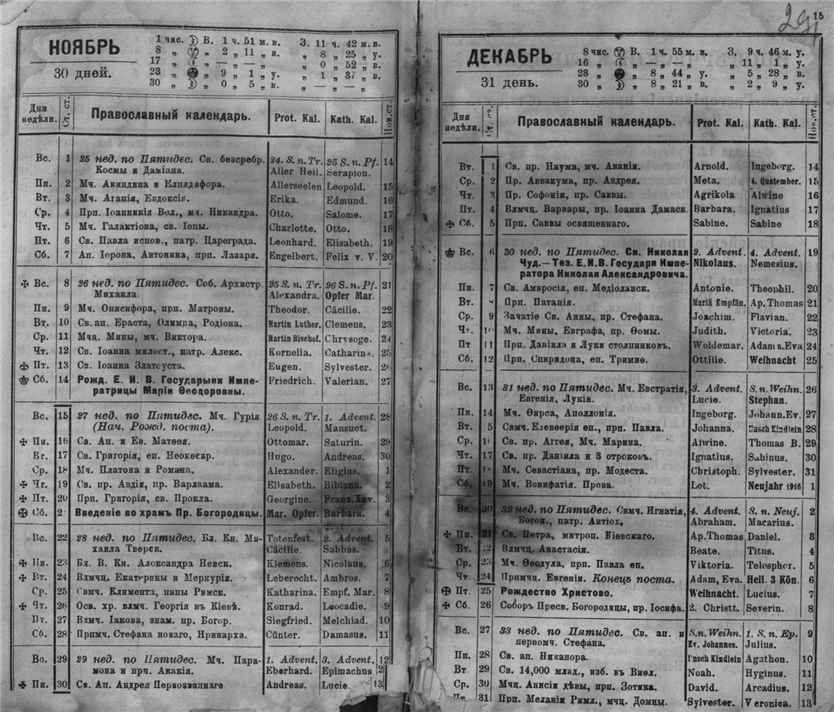 15
29
НОЯБРЬ
30 дней.
1 чис. В. 1 ч. 51 м. в. З. 11 ч. 42 м. в.
8 „ „ 2 „ 11 „ в. „ 8 „ 25 „ у.
17 „ „ — „ — „ „ 0 „ 52 „ в.
23 „ „ 9 „ 1 „ у. „ 1 „ 37 „ в.
30 „ „ 0 „ 5 „ в. „ — „ — „
Дни недѣли. Ст. ст. Православный календарь. Prot. Kal. Kath. Kal. Нов. ст.
Вс. 1 25 нед. по Пятидес. Св. безсребр. 24. S. n. Tr. 25 S. n. Pf. 14
Космы и Даміана. Aller Heil. Serapion.
Пн. 2 Мч. Акиндина и Елпидифора. Allerseelen Leopold. 15
Вт. 3 Мч. Агапія, Евдоксія. Erika. Edmund. 16
Ср. 4 Прп. Іоанникія Вел., мч. Никандра. Otto. Salome. 17
Чт. 5 Мч. Галактіона, св. Іоны. Charlotte. Otto. 18
Пт. 6 Св. Павла испов., патр. Цареграда. Leonhard. Elisabeth. 19
Сб. 7 Ап. Іерона, Антонина, прп. Лазаря. Engelbert. Felix v. V. 20
Вс. 8 26 нед. по Пятидес. Соб. Архистр. 25 S. n. Tr. 26 S. n. Pf. 21
Михаила. Alexandra. Opfer Mar.
Пн. 9 Мч. Онисифора, прп. Матроны. Theodor. Cäcilie. 22
Вт. 10 Св. ап. Ераста, Олимпа, Родіона. Martin Luther. Clemens. 23
Ср. 11 Мчц. Мины, мч. Виктора. Martin Bischof. Chrysogo. 24
Чт. 12 Св. Іоанна милост., патр. Алекс. Kornelia. Catharina. 25
Пт. 13 Св. Іоанна Златоуста. Eugen. Sylvester. 26
Сб. 14 Рожд. Е. И. В. Государыни Импе- Friedrich. Valerian. 27
ратрицы Маріи Ѳеодоровны.
Вс. 15 27 нед. по Пятидес. Мч. Гурія 26 S. n. Tr. 1. Advent. 28
(Нач. Рожд. поста). Leopold. Mansuet.
Пн. 16 Св. Ап. и Ев. Матѳея. Ottomar. Saturin. 29
Вт. 17 Св. Григорія, еп. Неокесар. Hugo. Andreas. 30
Ср. 18 Мч. Платона и Романа. Alexander. Eligius. 1
Чт. 19 Св. пр. Авдія, пр. Варлаама. Elisabeth. Bibiana. 2
Пт. 20 Прп. Григорія, св. Прокла. Georgine. Franz. Xav. 3
Сб. 2 Введеніе во храмъ Пр. Богородицы. Mar. Opfer. Barbara. 4
Вс. 22 28 нед. по Пятидес. Бл. Кн. Ми- Totenfest. 2. Advent. 5
хаила Тверск. Cäcilie. Sabbas.
Пн. 23 Бл. В. Кн. Александра Невск. Klemens. Nicolaus. 6
Вт. 24 Влмчц. Екатерины и Меркурія. Leberecht. Ambros. 7
Ср. 25 Свмч. Климента, папы Римск. Katharina. Empf. Mar. 8
Чт. 26 Осв. хр. влмч. Георгія въ Кіевѣ. Konrad. Leocadie. 9
Пт. 27 Влмч. Іакова, знам. пр. Богор. Siegfried. Melchiad. 10
Сб. 28 Примч. Стефана новаго, Иринарха. Günter. Damasus. 11
Вс. 29 29 нед. по Пятидес. Мч. Пара- 1. Advent. 3. Advent. 12
мона и прч. Акакія. Eberhard. Epimachus.
Пн. 30 Св. Ап. Андрея Первозваннаго Andreas. Lucie. 13
ДЕКАБРЬ
31 день.
8 чис. В. 1 ч. 55 м. в. З. 9 ч. 46 м. у.
16 „ „ — „ — „ „ 11 „ 1 „ у.
23 „ „ 8 „ 44 „ у. „ 5 „ 28 „ в.
30 „ „ 8 „ 21 „ в. „ 2 „ 9 „ у.
Дня недѣли. Ст. ст. Православный календарь. Prot. Kal. Kath. Kal. Нов. ст.
Вт. 1 Св. пр. Наума, мч. Ананіи. Arnold. Ingeborg. 14
Ср. 2 Пр. Аввакума, пр. Андрея. Meta. 4. Quatember. 15
Чт. 3 Пр. Софоніи, пр. Саввы. Agrikola Alwine 16
Пт. 4 Влмчц. Варвары, пр. Іоанна Дамаск. Barbara. Ignatius 17
Сб. 5 Прп. Саввы освященнаго. Sabine Sabine 18
Вс. 6 30 нед. по Пятидес. Св. Николая 2. Advent. 4. Advent. 19
Чуд.—Тез. Е.И.В. Государя Импе- Nikolaus. Nemesius.
ратора Николая Александровича.
Пн. 7 Св. Амвросія, еп. Медіоланск. Antonie. Theophil. 20
Вт. Прп. Патапія. Mariä Empfän. Ap. Thomas 21
Ср. 9 Зачатіе Св. Анны, пр. Стефана. Joachim. Flavian. 22
Чт. 10 Мч. Мины, Евграфа, пр. Ѳомы. Judith. Victoria. 23
Пт 11 Прп. Даніила и Луки столпниковъ. Woldemar. Adam u. Eva 24
Сб. 12 Прп. Спиридона, еп. Тримие. Ottilie. Weihnacht 25
Вс. 13 31 нед. по Пятидес. Мч. Евстратія, 3. Advent. S. n. Weihn. 26
Евгенія, Лукіи. Lucie. Stephan.
Пн. 14 Мч. Ѳирса, Аполлонія. Ingeborg. Johann. Ev. 27
Вт. 5 Свмч. Елевѳерія еп., прп. Павла. Johanna. Unsch Kindlein 28
Ср. 1 Св. пр. Аггея, Мч. Марина. Alwine. Thomas B. 29
Чт. 17 Св. пр. Даніила и 3 отроковъ. Ignatius. Sabinus. 30
Пт. 1 Мч. Севастіана, пр. Модеста. Christoph. Sylvester. 31
Сб. 19 Мч. Вонифатія, Прова. Lot. Neujahr 1916 1
Вс. 20 32 нед. по Пятидес. Свмч. Игнатія, 4. Advent. S. n. Neuj. 2
Богон., патр. Антіох. Abraham. Macarius.
Пн. 21 Св. Петра, митроп. Кіевскаго. Ap. Thomas Daniel. 3
Вт. 22 Влмчц. Анастасіи. Beate. Titus. 4
Ср. 23 Мч. Ѳеодула, прп. Павла еп. Viktoria. Telesphor. 5
Чт. 24 Примчц. Евгеніи. Конецъ поста. Adam, Eva. Heil. 3 Kön. 6
Пт. 25 Рождество Христово. Weihnacht. Lucius. 7
Сб. 26 Соборъ Пресв. Богородицы, пр. Іосифа. 2. Christt. Severin. 8
Вс. 27 33 нед. по Пятидес. Св. ап. и S. n. Weihn. 1. S. n. Ep. 9
первомч. Стефана. Ev. Johannes. Julius.
Пн. 28 Св. ап. Никанора. Unsch Kindlein Agathon. 10
Вт. 29 Св. 14,000 млад., изб. въ Виѳл. Noah. Hyginus. 11
Ср. 30 Мчц. Анисіи дѣвы, прп. Зотика. David. Arcadius. 12
Пт. 31 Прп. Меланіи Римл., мчц. Домны. Sylvester. Veronica. 13